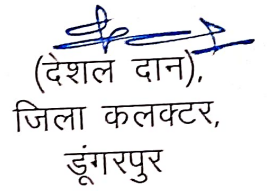 (देशल दान),
जिला कलक्टर,
डूंगरपुर